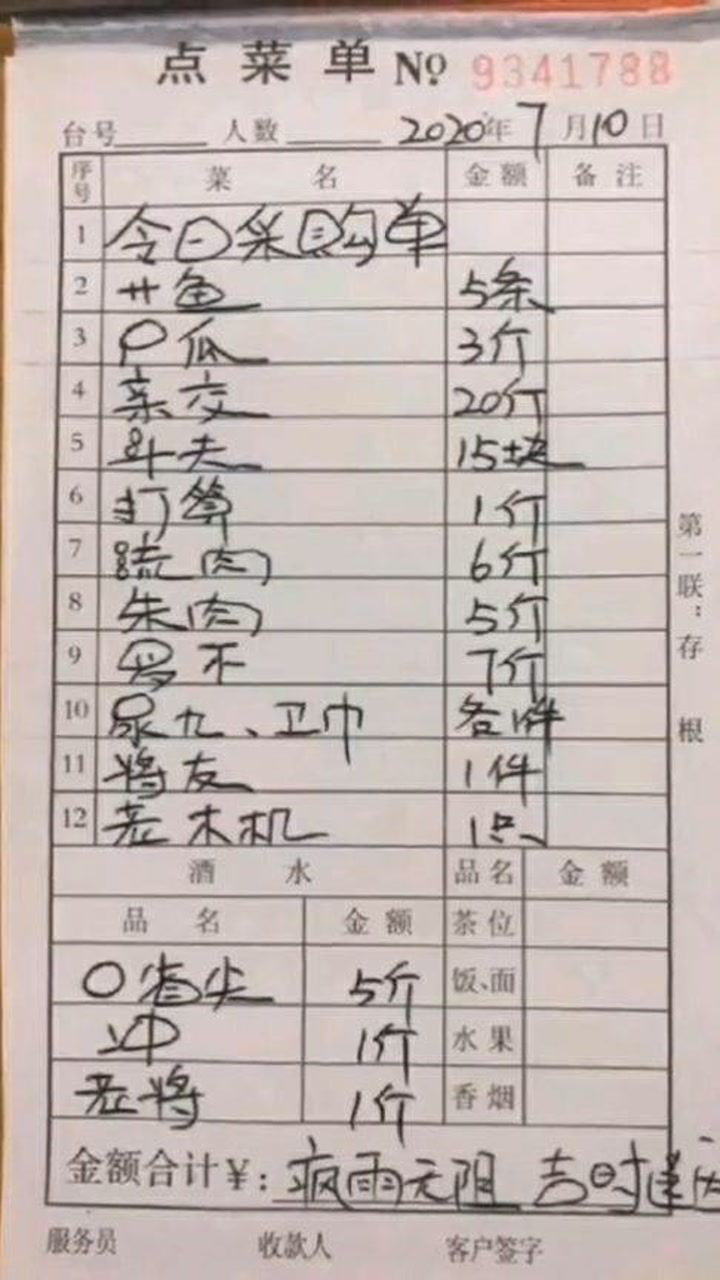 点菜单 № 9341788
台号 人数 2020年7月10日
序号 菜名 金额 备注
1 今日采购单
2 廿鱼 5条
3 口瓜 3斤
4 亲交 20斤
5 斗夫 15块
6 打算 1斤
7 肉 6斤
8 朱肉 5斤
9 罗不 7斤
10 尿九、卫巾 各1件
11 将友 1件
12 老木机 1只
酒水 品名 金额
品名 金额 茶位
〇省尖 5斤 饭、面
冲 1斤 水果
老将 1斤 香烟
金额合计¥: 疯雨无阻 吉时送
服务员 收款人 客户签字
第一联:存根